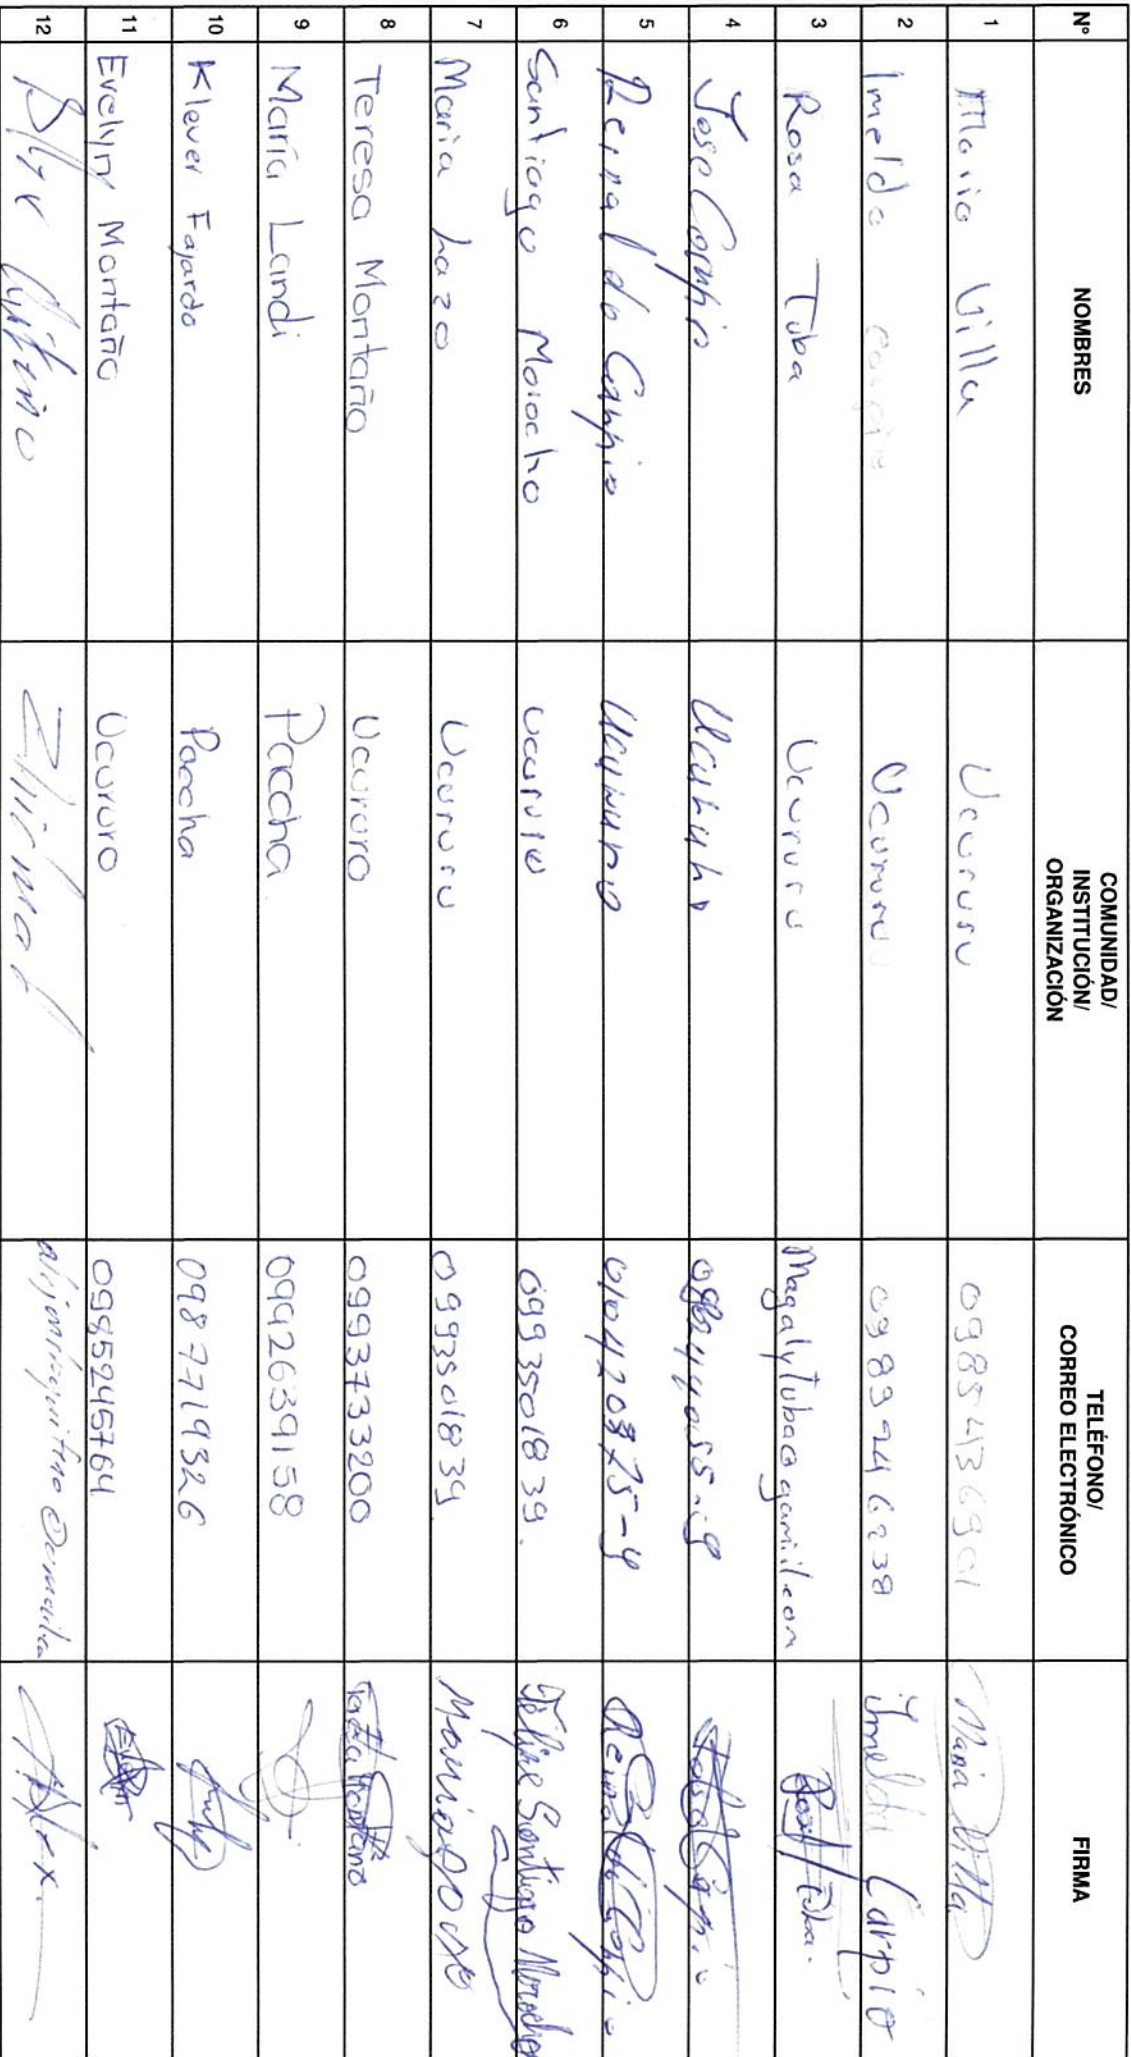 N° NOMBRES COMUNIDAD/ INSTITUCIÓN/ ORGANIZACIÓN TELÉFONO/ CORREO ELECTRÓNICO FIRMA
1 Maria Villa Ucururu 0985436901 Maria Villa
2 Imelda Carpio Ucururu 0983946238 Imelda Carpio
3 Rosa Tuba Ucururu Magalytuba@gamil.com Rosa Tuba.
4 Jose Carpio Jose Carpio
5 Reinaldo Carpio Ucururo Reinaldo Carpio
6 Santiago Morocho Ucururu 0993501839. Felipe Santiago Morocho
7 Maria Lazo Ucururu 0993501839
8 Teresa Montaño Ucururo 0993733200 Montaño
9 María Landi Paccha 0992639158
10 Klever Fajardo Paccha 0987719326
11 Evelyn Montaño Ucururo 0985245764
12 Alex.